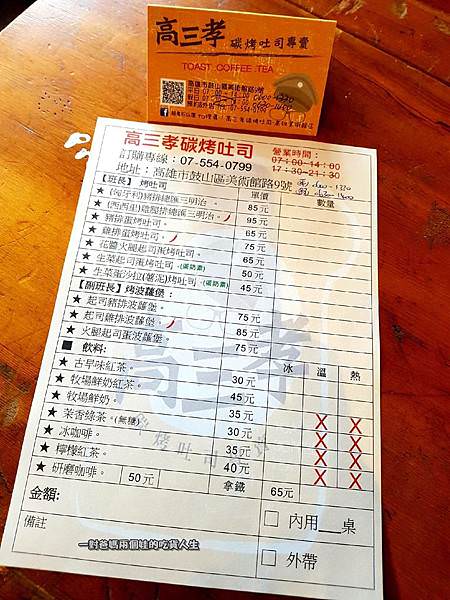 高三孝 碳烤吐司專賣
TOAST COFFEE TEA
高雄市鼓山區美術館路9號
高三孝碳烤吐司
訂購專線：07-554-0799
地址：高雄市鼓山區美術館路9號
營業時間：
07:00-14:00
17:30-21:30
【班長】 烤吐司 單價 數量
★ (匈牙利)豬排總匯三明治。 85元
★ (西西里)雞腿排總匯三明治。 95元
★ 豬排蛋烤吐司。 65元
★ 雞排蛋烤吐司。 75元
★ 花豔火腿起司蛋烤吐司。 65元
★ 生菜起司蛋烤吐司。(蛋奶素) 50元
★ 生菜蛋沙拉(薯泥)烤吐司。(蛋奶素) 45元
【副班長】烤波蘿堡：
★ 起司豬排波蘿堡。 75元
★ 起司雞排波蘿堡。 85元
★ 火腿起司蛋波蘿堡。 75元
■ 飲料: 冰 溫 熱
★ 古早味紅茶。 30元
★ 牧場鮮奶紅茶。 45元
★ 牧場鮮奶。 35元 X X
★ 茉香綠茶。(無糖) 30元 X X
★ 冰咖啡。 35元 X X
★ 檸檬紅茶。 40元 X X
★ 研磨咖啡。 50元 拿鐵 65元
金額:
備註
□ 內用__桌
□ 外帶
高三孝
碳烤吐司專賣
一對爸媽兩個娃的吃貨人生